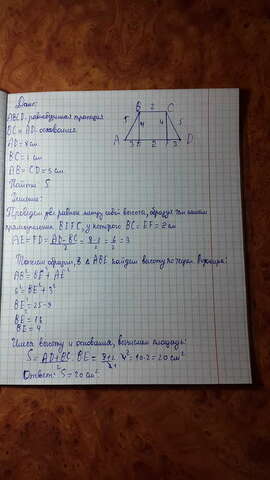 Дано:
ABCD-равнобедренная трапеция
BC и AD-основания
AD=8 см
BC=2 см
AB=CD=5 см
Найти S
Решение:
Проведем две равные между собой высоты, образуя тем самым
прямоугольник BEFC, у которого BC=EF=2 см
AE=FD=AD-BC/2=8-2/2=6/2=3
Таким образом, в Δ ABE найдем высоту
AB²=BE²+AE²
5²=BE²+3²
BE²=25-9
BE=16
BE=4
Имея высоту и основания, вычислим площадь:
S=AD+BC/2·BE=8+2/2·4=10·2=20 см²
Ответ: S=20 см²
B 2 C
5 4 4 5
A 3 2 3 D